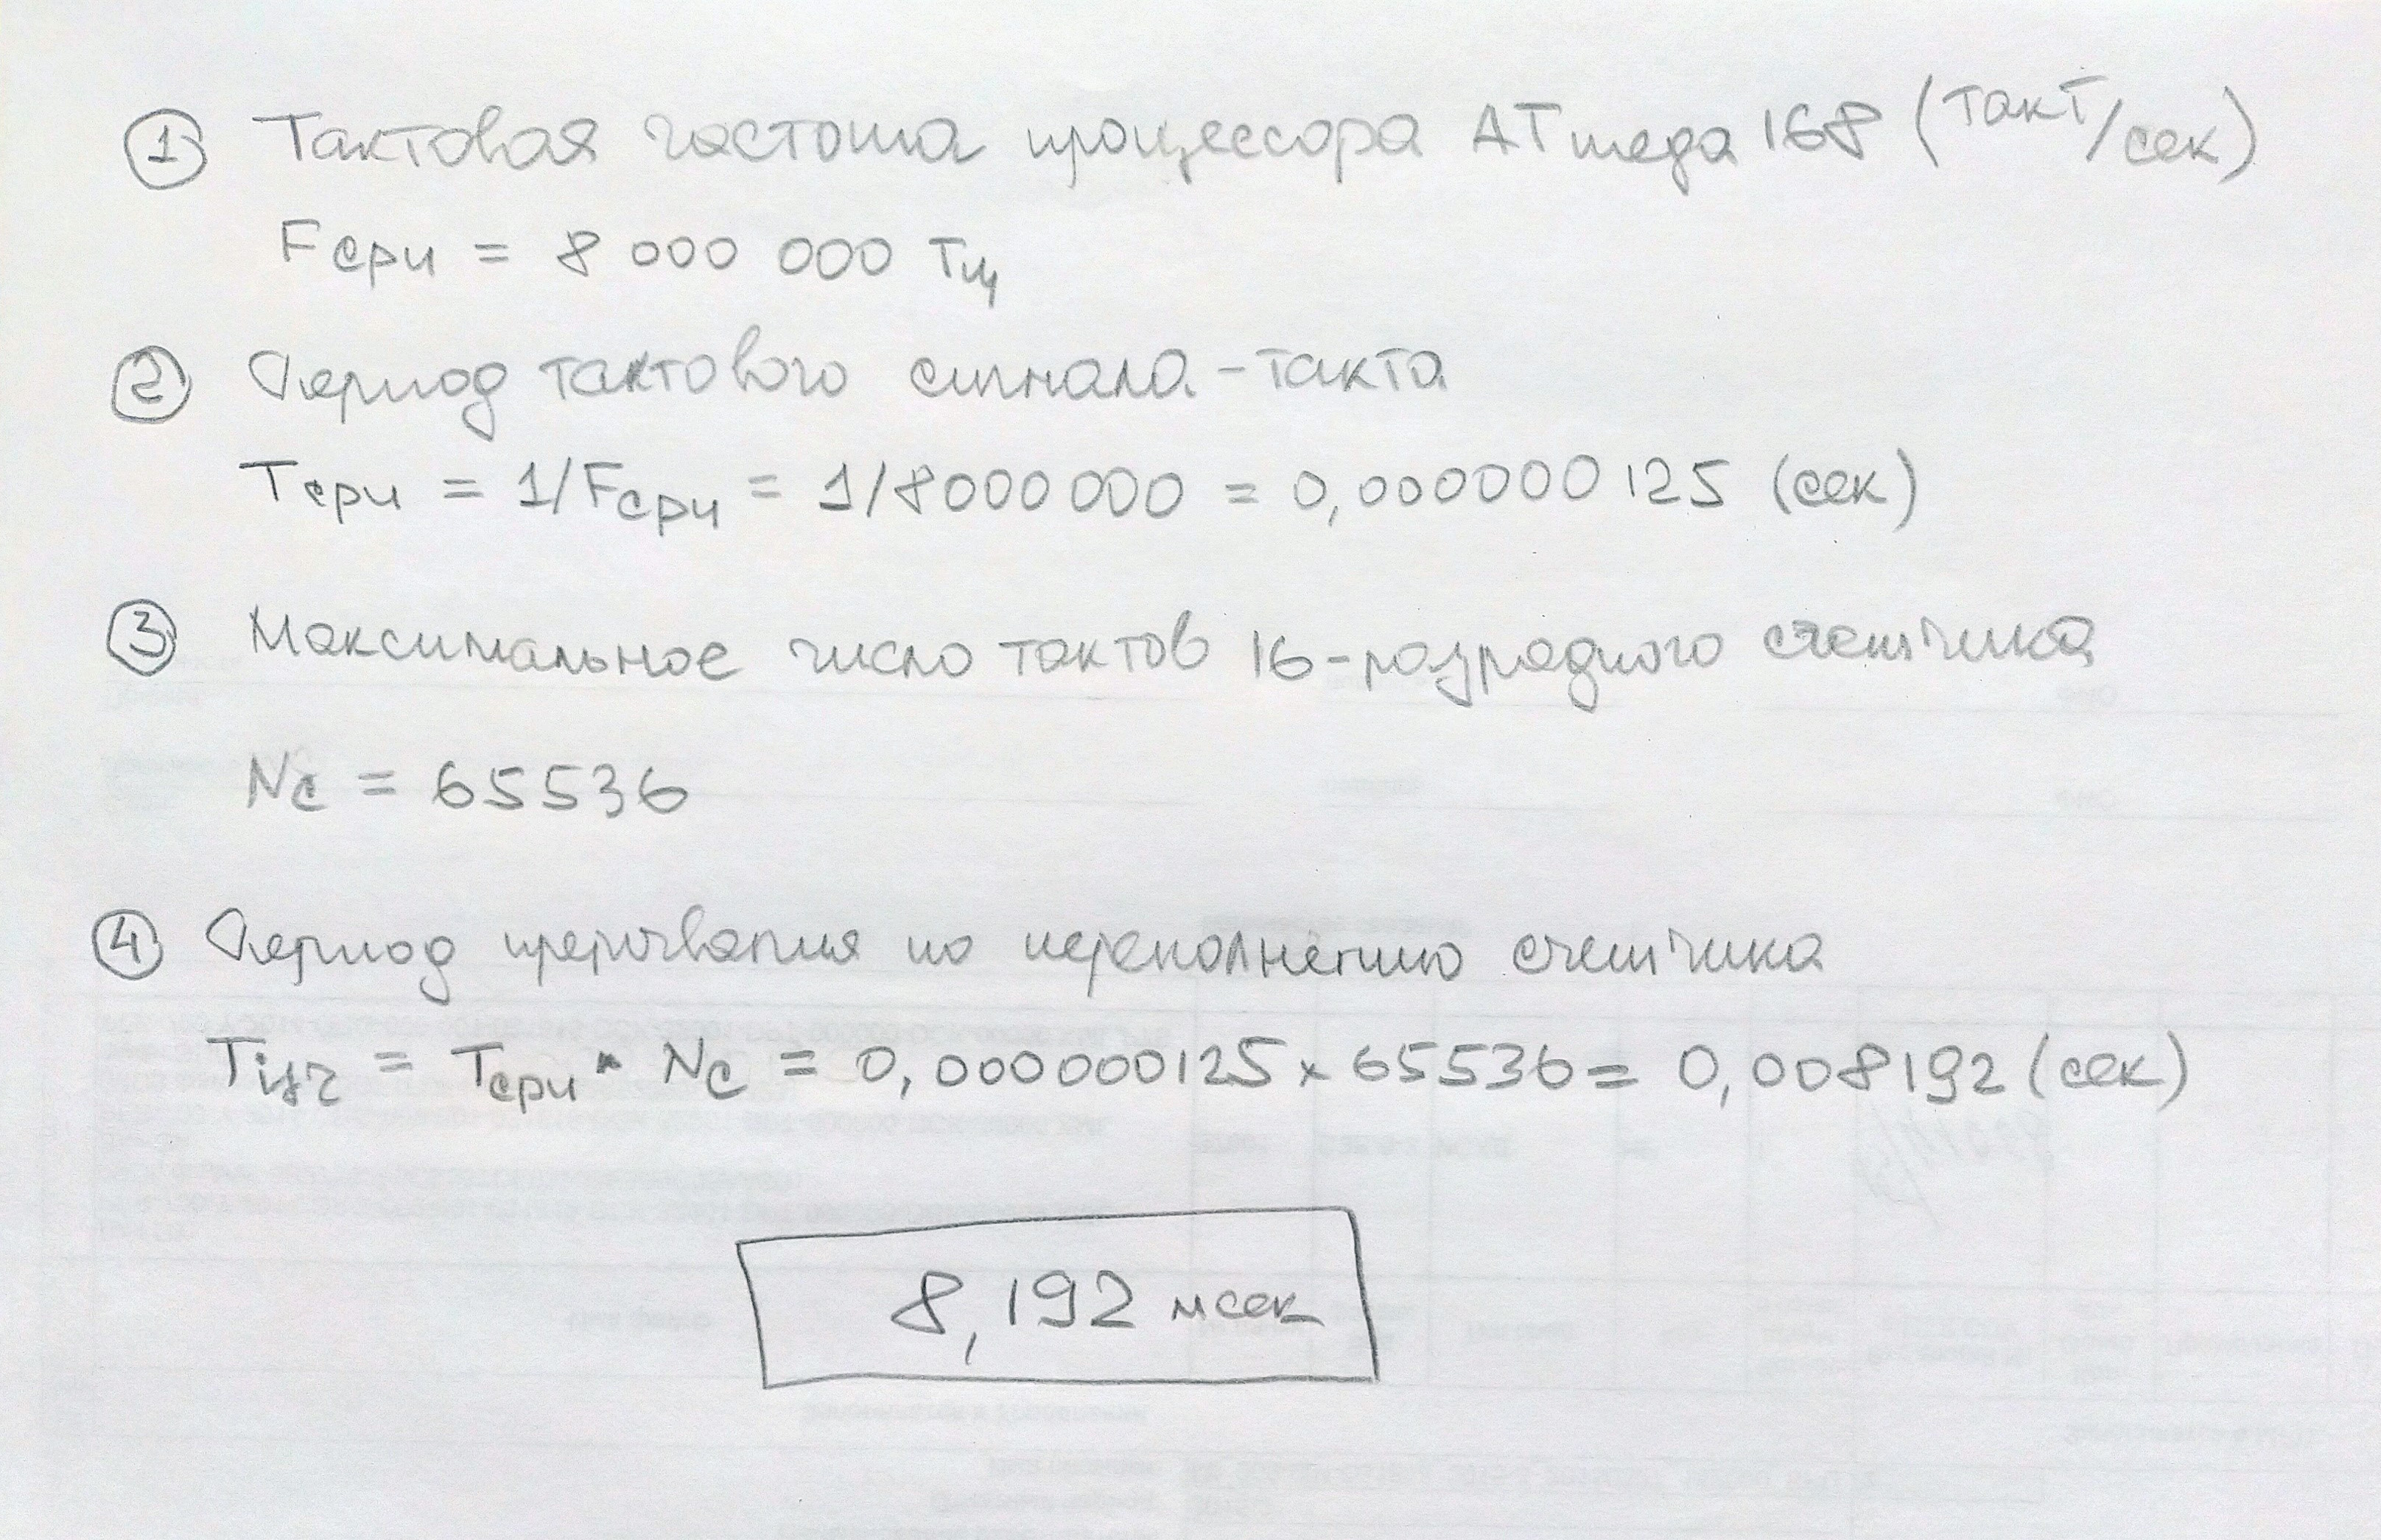 ① Тактовая частота процессора ATmega 168 (такт/сек)
Fcpu = 8 000 000 Гц
② Период тактового сигнала - такта
Tcpu = 1/Fcpu = 1/8000000 = 0,000000125 (сек)
③ Максимальное число тактов 16-разрядного счетчика
Nc = 65536
④ Период прерывания по переполнению счетчика
Tisr = Tcpu * Nc = 0,000000125 × 65536 = 0,008192 (сек)
8,192 мсек